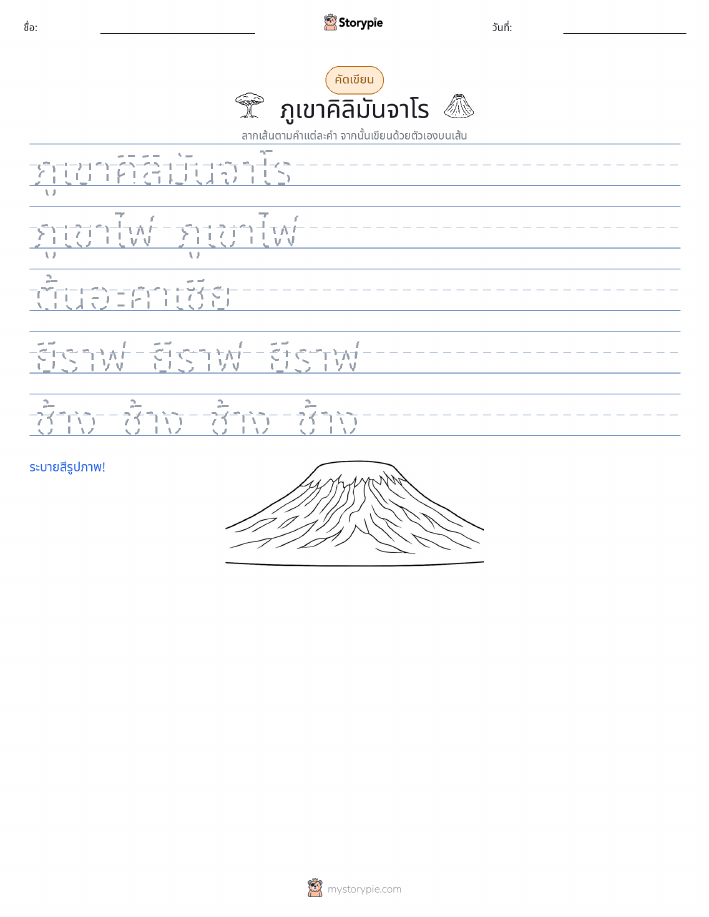 ชื่อ:
Storypie
วันที่:
คัดเขียน
ภูเขาคิลิมันจาโร
ลากเส้นตามคำแต่ละคำ จากนั้นเขียนด้วยตัวเองบนเส้น
ภูเขาคิลิมันจาโร
ภูเขาไฟ ภูเขาไฟ
ต้นอะคาเซีย
ยีราฟ ยีราฟ ยีราฟ
ช้าง ช้าง ช้าง ช้าง
ระบายสีรูปภาพ!
mystorypie.com